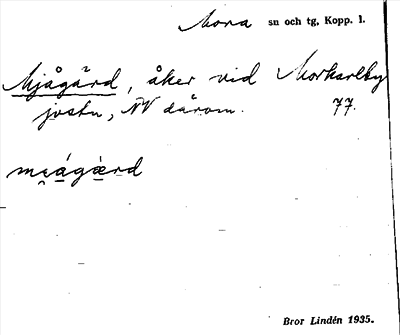 Mora sn och tg, Kopp. l.
Mjågård, åker vid Morkarlby
jvstn, NV därom. 77.
Bror Lindén 1935.